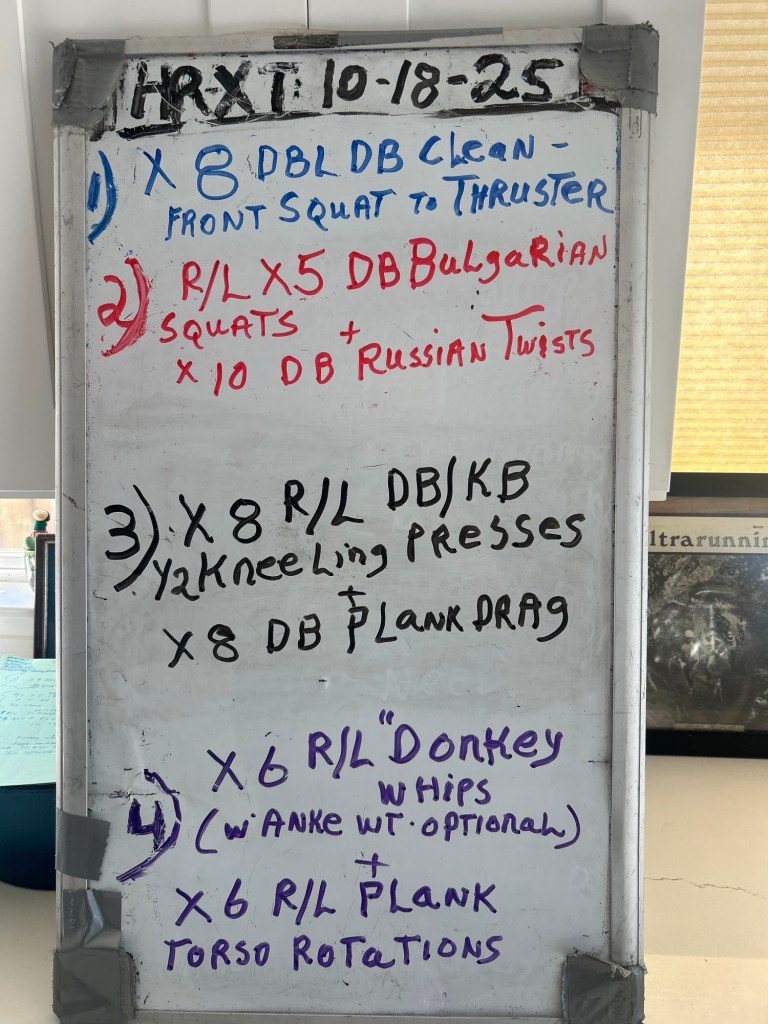 HR-XT: 10-18-25
1) X 8 DBL DB CLEAN -
FRONT SQUAT TO THRUSTER
2) R/L X5 DB BULGARIAN
SQUATS +
X 10 DB RUSSIAN TWISTS
3) X 8 R/L DB/KB
1/2 KNEELING PRESSES
+
X 8 DB PLANK DRAG
4) X 6 R/L "DONKEY
WHIPS
(W ANKE WT. OPTIONAL)
+
X 6 R/L PLANK
TORSO ROTATIONS
ltrarunnin